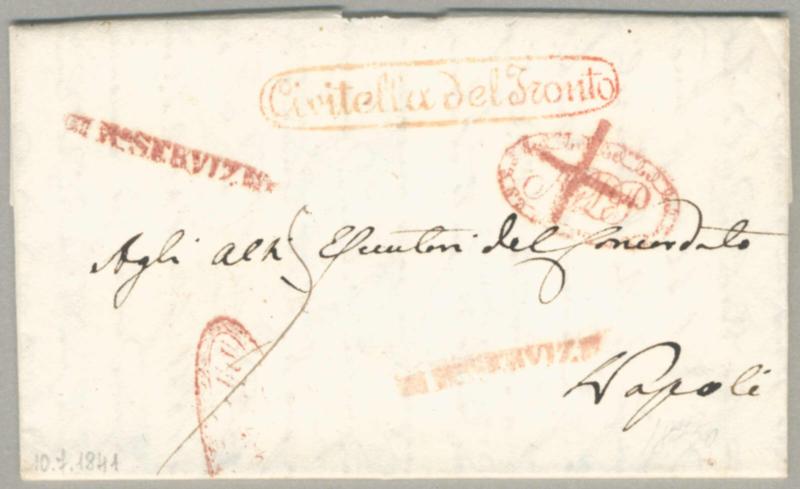 Civitella del Tronto
Rl SERVIZI
Agli Alti Esecutori del Concordato
RL SERVIZI
Napoli
10.7.1841